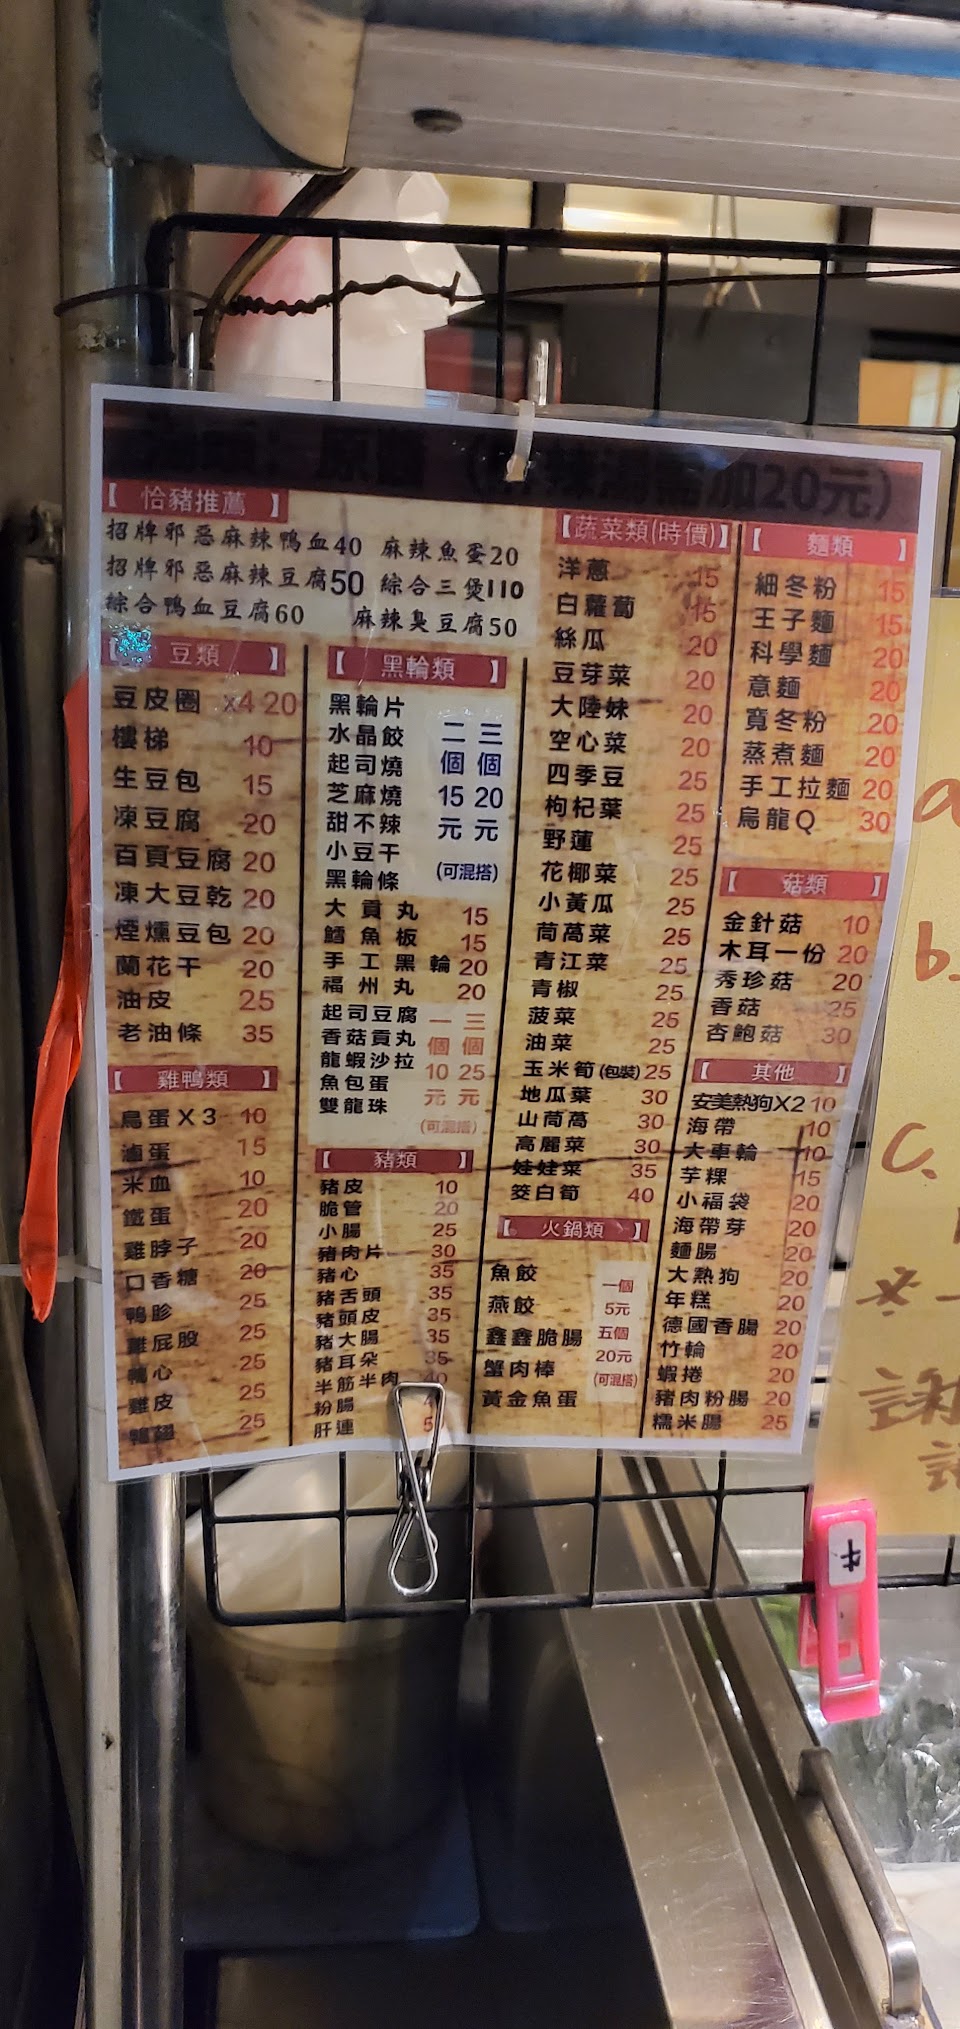 加20元)
【 恰豬推薦 】
招牌邪惡麻辣鴨血40 麻辣魚蛋20
招牌邪惡麻辣豆腐50 綜合三煲110
綜合鴨血豆腐60 麻辣臭豆腐50
【 豆類 】
豆皮圈 x4 20
樓梯 10
生豆包 15
凍豆腐 20
百頁豆腐 20
凍大豆乾 20
煙燻豆包 20
蘭花干 20
油皮 25
老油條 35
【 雞鴨類 】
鳥蛋X3 10
滷蛋 15
米血 10
鐵蛋 20
雞脖子 20
口香糖 20
鴨胗 25
雞屁股 25
鴨心 25
雞皮 25
鴨翅 25
【 黑輪類 】
黑輪片
水晶餃
起司燒
芝麻燒
甜不辣
小豆干
黑輪條
二 三
個 個
15 20
元 元
(可混搭)
大貢丸 15
鱈魚板 15
手工黑輪 20
福州丸 20
起司豆腐
香菇貢丸
龍蝦沙拉
魚包蛋
雙龍珠
一 三
個 個
10 25
元 元
(可混搭)
【 豬類 】
豬皮 10
脆管 20
小腸 25
豬肉片 30
豬心 35
豬舌頭 35
豬頭皮 35
豬大腸 35
豬耳朵 35
半筋半肉
粉腸
肝連
【蔬菜類(時價)】
洋蔥 15
白蘿蔔 15
絲瓜 20
豆芽菜 20
大陸妹 20
空心菜 20
四季豆 25
枸杞葉 25
野蓮 25
花椰菜 25
小黃瓜 25
茼萵菜 25
青江菜 25
青椒 25
菠菜 25
油菜 25
玉米筍(包裝) 25
地瓜葉 30
山茼萵 30
高麗菜 30
娃娃菜 35
筊白筍 40
【 火鍋類 】
魚餃
燕餃
鑫鑫脆腸
蟹肉棒
黃金魚蛋
一個
5元
五個
20元
(可混搭)
【 麵類 】
細冬粉 15
王子麵 15
科學麵 20
意麵 20
寬冬粉 20
蒸煮麵 20
手工拉麵 20
烏龍Q 30
【 菇類 】
金針菇 10
木耳一份 20
秀珍菇 20
香菇 25
杏鮑菇 30
【 其他 】
安美熱狗X2 10
海帶 10
大車輪 10
芋粿 15
小福袋 20
海帶芽 20
麵腸 20
大熱狗 20
年糕 20
德國香腸 20
竹輪 20
蝦捲 20
豬肉粉腸 20
糯米腸 25
a
b.
c.